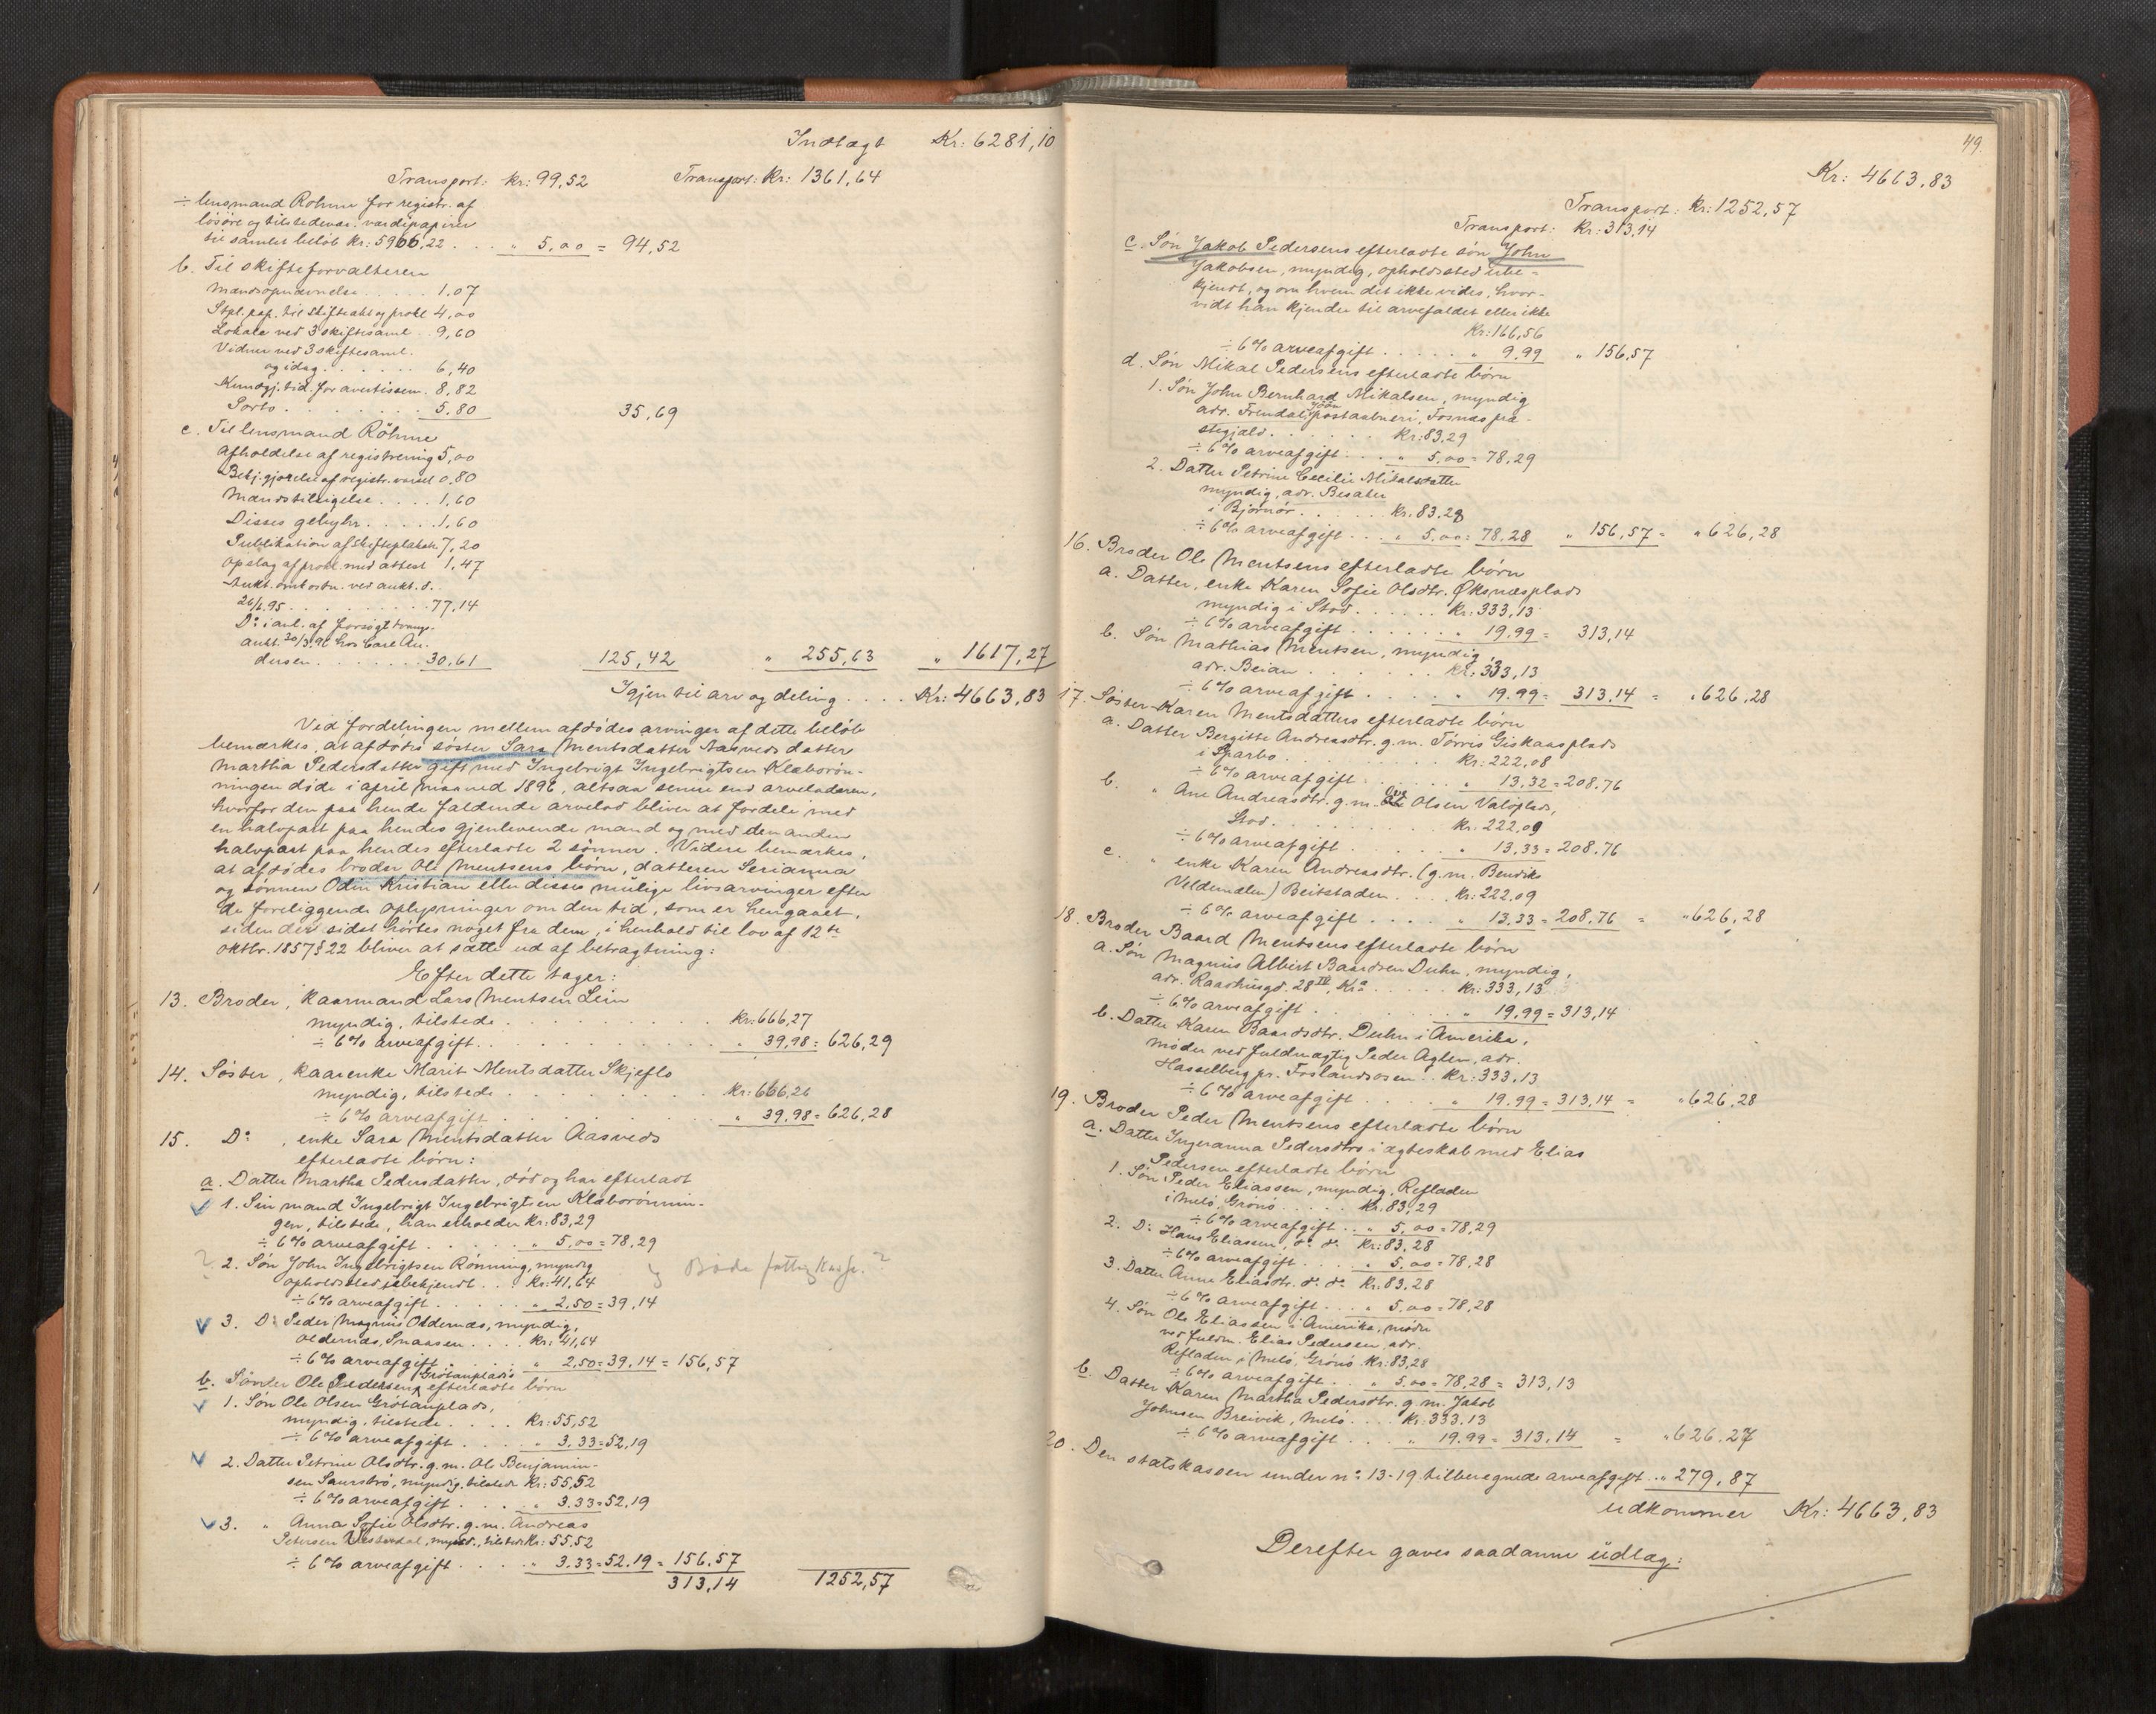 Indtægt Kr: 6281,10
Transport: kr: 99,52 Transport: Kr: 1361,64
÷ lensmand Röhme for registr. af
lösöre og tilstedevær. værdipapirer
til samlet belöb kr: 5966,22 . . . " 5,00 = 94,52
b. Til skifteforvalteren
Mændsopnævnelse . . . . . 1.07
Stpl. pap. til skifteakt og protk 4,00
Lokale ved 3 skiftesaml. . . 9,60
Vidner ved 3 skiftesaml.
og idag . . . . . . 6,40
Kundgj. tid. for avertissem. 8,82
Porto . . . . . . . . 5.80 35,69
c. Til lensmand Röhme
Afholdelse af registrering 5,00
Bekj.gjörelse af registr. varsel 0,80
Mændstilsigelse . . . . 1,60
Disses gebyhr . . . . . 1,60
Publikation af skifteplakat 7,20
Opslag af prokl. med attest 1,47
Aukt. omkostn. ved aukt. d.
26/6.95 . . . . . . . . . 77,14
Do i anl. af forsögt tvang.
aukt. 30/3.96 hos Carl An-
dersen . . . . . . . 30,61 125,42 " 255,63 " 1617,27
Igjen til arv og deling . . . . Kr: 4663,83
Ved fordelingen mellem afdödes arvinger af dette belöb
bemærkes, at afdödes söster Sara Mentsdatter Aasveds datter
Martha Pedersdatter gift med Ingebrigt Ingebrigtsen Klæborön-
ningen döde i april maaned 1896, altsaa senere end arveladeren,
hvorfor den paa hende faldende arvelod bliver at fordele med
en halvpart paa hendes gjenlevende mand og med den anden
halvpart paa hendes efterladte 2 sönner. Videre bemærkes,
at afdödes broder Ole Mentsens börn, datteren Serianna
og sönnen Odin Kristian eller disses mulige livsarvinger efter
de foreliggende oplysninger om den tid, som er hengaaet,
siden der sidst hörtes noget fra dem, i henhold til lov af 12te
oktbr. 1857 § 22 bliver at sætte ud af betragtning:
Efter dette tager:
13. Broder, kaarmand Lars Mentsen Lein
myndig, tilstede . . . . . . . . . kr: 666,27
÷ 6% arveafgift . . . . . . . . . . " 39,98 = 626,29
14. Söster, kaarenke Marit Mentsdatter Skjeflo
myndig, tilstede . . . . . . . . . kr: 666,26
÷ 6% arveafgift . . . . . . . . . " 39,98 = 626,28
15. Do , enke Sara Mentsdatter Aasveds
efterladte börn:
a. Datter Martha Pedersdatter, död og har efterladt
1. Sin mand Ingebrigt Ingebrigtsen Klæborönnin-
gen, tilstede, han erholder Kr: 83,29
÷ 6% arveafgift . . . . . " 5,00 = 78,29
? 2. Sön John Ingebrigtsen Rönning, myndig
opholdssted ubekjendt . . . Kr: 41,64 Bodö fattigkasse.?
÷ 6% arveafgift . . . . . " 2,50 = 39,14
3. Do Peder Magnus Oldernæs, myndig,
Oldernæs, Snaasen . . . . Kr: 41,64
÷ 6% arveafgift . . . . . " 2,50 = 39,14 = 156,57
Grötanplads
b. Sönnen Ole Pedersens efterladte börn
1. Sön Ole Olsen Grötanplads,
myndig, tilstede . . . . Kr: 55,52
÷ 6% arveafgift . . . . " 3.33 = 52,19
2. Datter Petrine Olsdtr. g.m. Ole Benjamin-
sen Saursbrö, myndig, tilstede Kr: 55,52
÷ 6% arveafgift . . . . . " 3.33 = 52,19
3. " Anna Sofie Olsdtr. g.m. Andreas
Petersen , mynd., tilstede Kr: 55,52
÷ 6% arveafgift . . . . " 3.33 = 52.19 = 156,57
313,14 1252,57
49.
Kr: 4663,83
Transport: Kr: 1252,57
Transport: Kr: 313,14
c. Sön Jakob Pedersens efterladte sön John
Jakobsen, myndig, opholdssted ube-
kjendt, og om hvem det ikke vides, hvor-
vidt han kjender til arvefaldet eller ikke
Kr: 166,56
÷ 6% arveafgift . . . . . " 9,99 " 156,57
d. Sön Mikal Pedersens efterladte börn
1. Sön John Bernhard Mikalsen, myndig
adr. postaabneri, Fosnæs præ-
stegjæld . . . . . . Kr: 83,29
÷ 6% arveafgift . . . " 5,00 = 78,29
2. Datter Petrine Cecilie Mikalsdatter
myndig, adr. Besaker
i Björnör . . . . . Kr. 83,28
÷ 6% arveafgift . . . " 5,00 = 78,28 " 156,57 = " 626,28
16. Broder Ole Mentsens efterladte börn
a. Datter, enke Karen Sofie Olsdtr. Øksnæsplads
myndig i Stod . . . . . . Kr: 333,13
÷ 6% arveafgift . . . . . . " 19,99 = 313,14
b. Sön Mathias Mentsen, myndig,
adr. Beian . . . . . . . Kr. 333,13
÷ 6% arveafgift . . . . . " 19.99 = 313,14 = " 626,28
17. Söster Karen Mentsdatters efterladte börn
a. Datter Bergitte Andreasdtr. g.m. Törris Giskaasplads
i Sparbo . . . . . . . . Kr: 222,08
÷ 6% arveafgift . . . . . " 13,32 = 208.76
b. " Ane Andreasdtr. g.m. Olsen Valöplads,
Stod . . . . . . . . . Kr: 222,09
÷ 6% arveafgift . . . . . . " 13,33 = 208.76
c. " enke Karen Andreasdtr. (g.m. Bendik
Veldemelen) Beitstaden . . . . Kr: 222.09
÷ 6% arveafgift . . . . " 13.33 = 208.76 = " 626,28
18. Broder Baard Mentsens efterladte börn
a. Sön Magnus Albert Baardsen Duhn, myndig,
adr. Raadhusgd. 28 IV, Kra . . . . . Kr: 333,13
÷ 6% arveafgift . . . . . . " 19.99 = 313,14
b. Datter Karen Baardsdtr. Duhn i Amerika,
möder ved fuldmægtig Peder Aglen, adr.
Hasselberg pr. Foslandsosen . . Kr: 333,13
÷ 6% arveafgift . . . . . " 19.99 = 313,14 = " 626,28
19. Broder Peder Mentsens efterladte börn
a. Datter Ingeranna Pedersdtrs i ægteskab med Elias
Pedersen efterladte börn
1. Sön Peder Eliassen, myndig, Refladen
i Melö, Grönö . . . . . Kr. 83,29
÷ 6% arveafgift . . . " 5,00 = 78,29
2. Do Hans Eliassen, do do Kr: 83,28
÷ 6% arveafgift . . . . " 5,00 = 78,28
3. Datter Anne Eliasdtr. do do Kr. 83,28
÷ 6% arveafgift . . . . " 5,00 = 78,28
4. Sön Ole Eliassen i Amerika, möder
ved fuldm. Elias Pedersen, adr.
Refladen i Melö, Grönö. Kr: 83,28
÷ 6% arveafgift . . . " 5.00 = 78,28 = 313,13
b. Datter Karen Martha Pedersdtr. g.m. Jakob
Johnsen Breivik, Melö . . . . Kr: 333.13
÷ 6% arveafgift . . . " 19.99 = 313,14 = " 626.27
20. Den statskassen under no 13-19 tilberegnede arveafgift . . " 279,87
udkommer Kr: 4663,83
Derefter gaves saadanne udlæg: